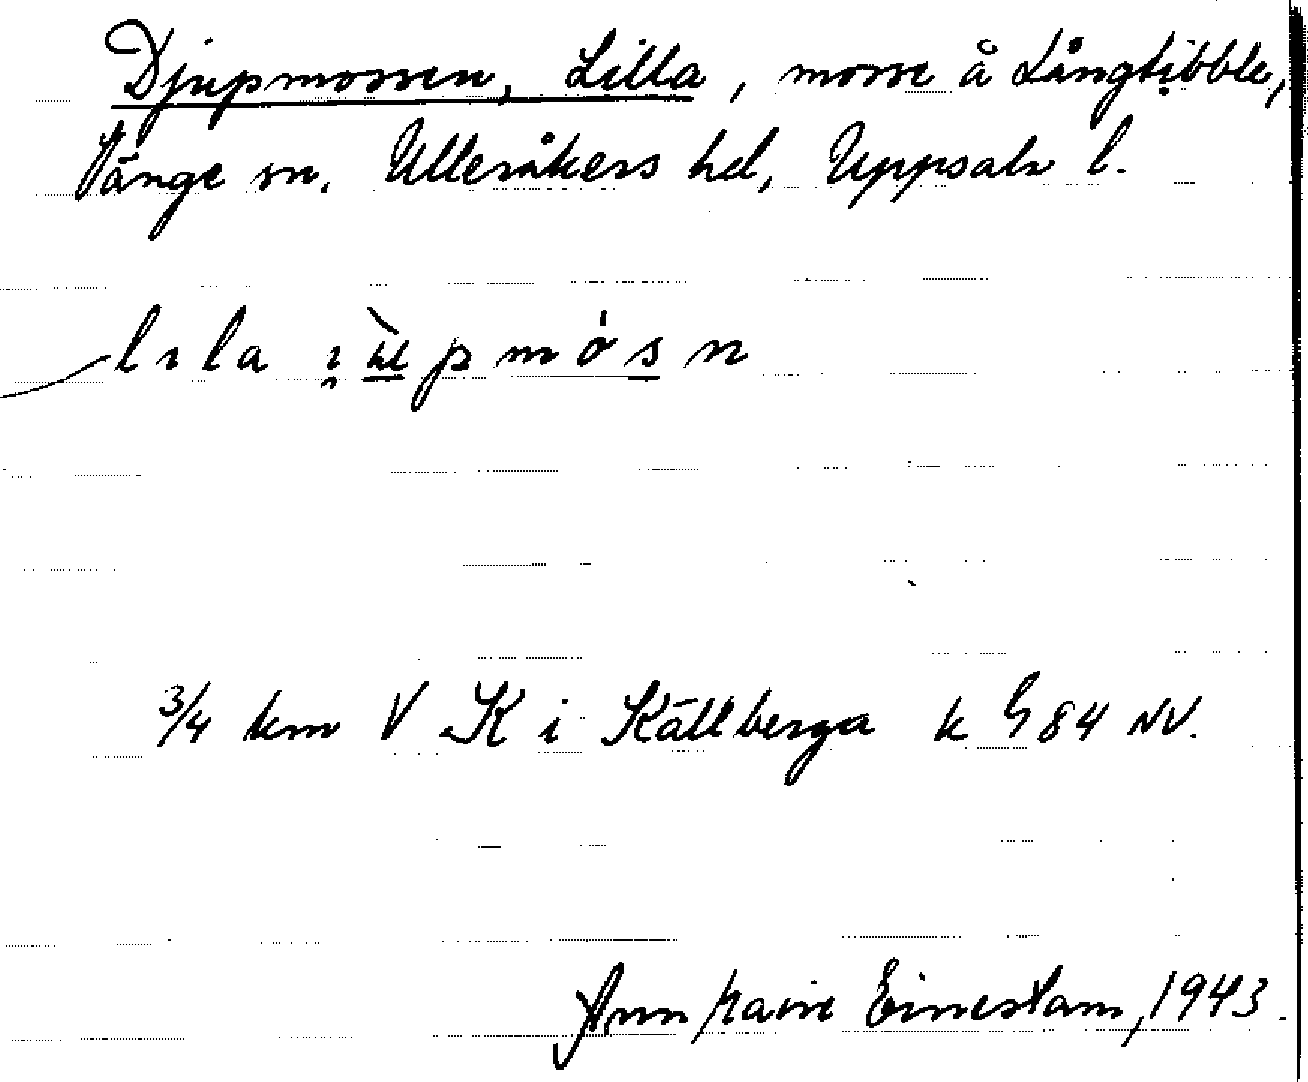 Djupmossen, Lilla, mosse å Långtibble,
Vänge sn. Ulleråkers hd, Uppsala l.
lıla ı̯ùpmósn
3/4 km V K i Källberga k G 84 NV.
Ann Marie Einestam, 1943.